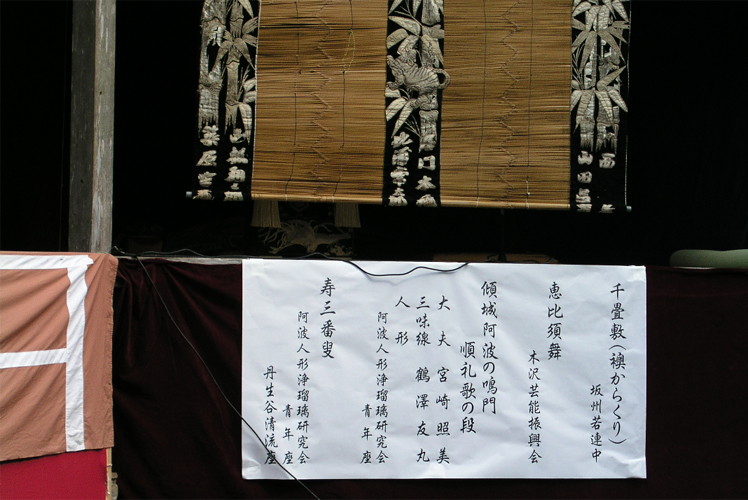 千畳敷(襖からくり)
坂州若連中
恵比須舞
木沢芸能振興会
傾城阿波の鳴門
順礼歌の段
大夫 宮崎照美
三味線 鶴澤友丸
人形
阿波人形浄瑠璃研究会
青年座
寿三番叟
阿波人形浄瑠璃研究会
青年座
丹生谷清流座